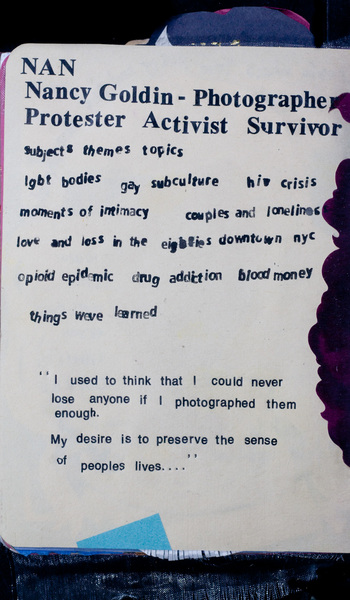 NAN
Nancy Goldin - Photographer
Protester Activist Survivor
subjects themes topics
lgbt bodies gay subculture hiv crisis
moments of intimacy couples and loneliness
love and loss in the eighties downtown nyc
opioid epidemic drug addiction blood money
things weve learned
"I used to think that I could never
lose anyone if I photographed them
enough.
My desire is to preserve the sense
of peoples lives...."